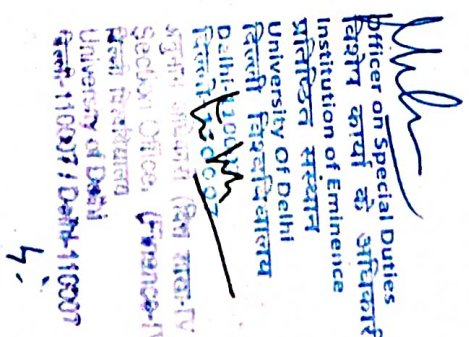 Officer on Special Duties
विशेष कार्य के अधिकारी
Institution of Eminence
प्रतिष्ठित संस्थान
University Of Delhi
दिल्ली विश्वविद्यालय
Delhi
दिल्ली
अनुभाग
Section Officer (Finance-IV
University of Delhi
दिल्ली-110007 / Delhi-110007